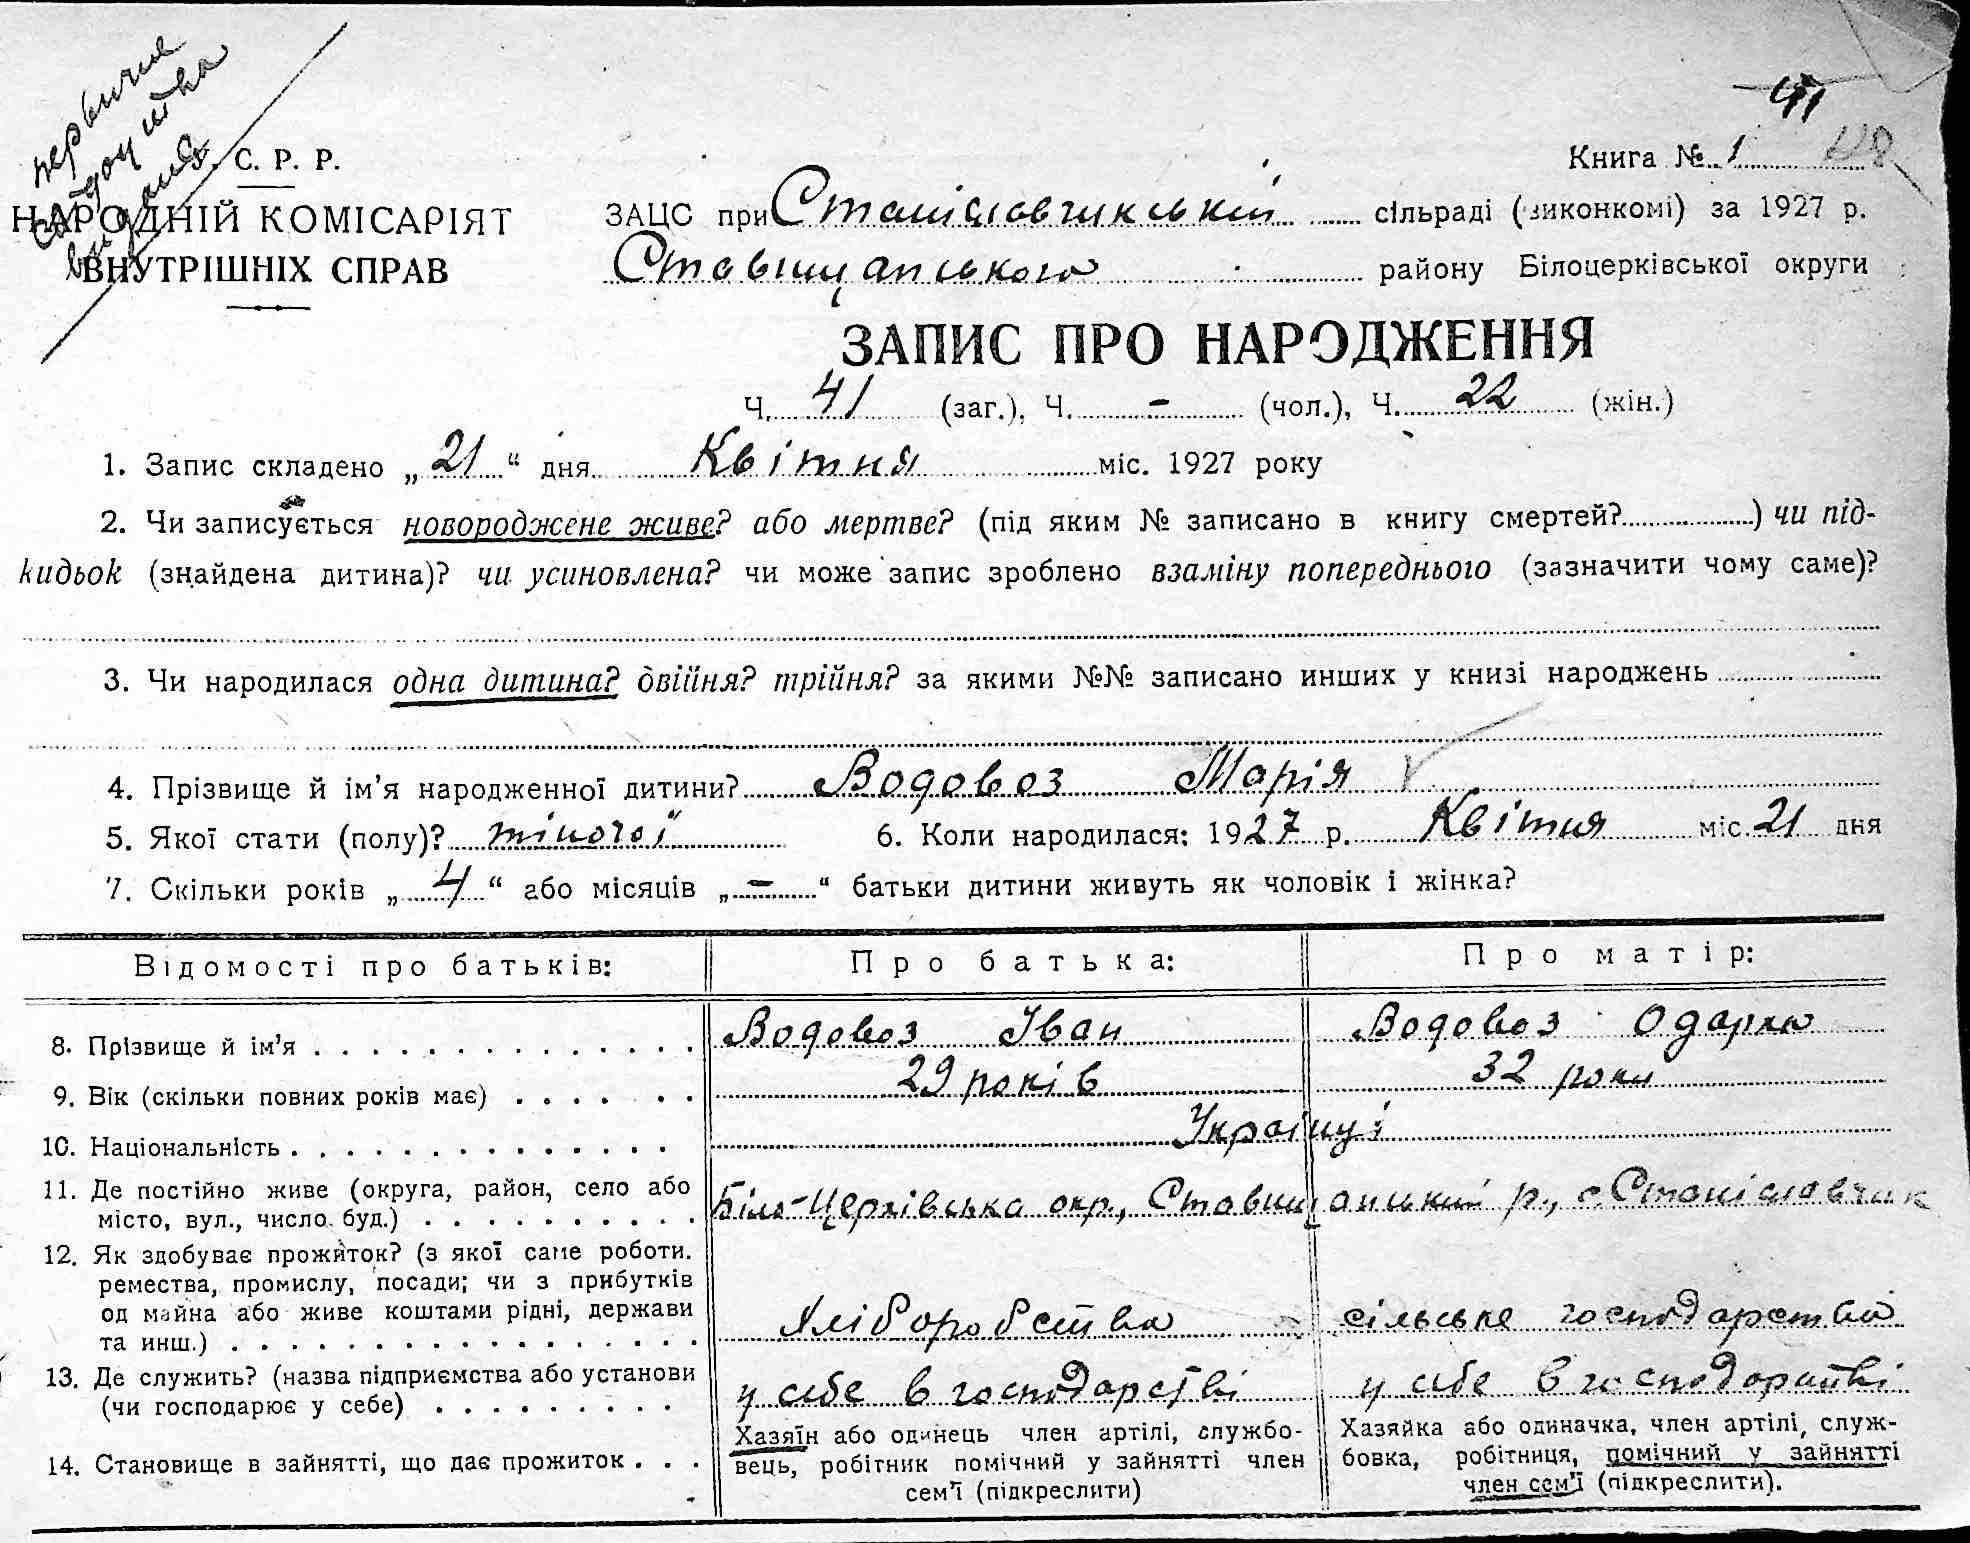 первичне
свідоцтво
видано
С. Р. Р.
НАРОДНІЙ КОМІСАРІЯТ
ВНУТРІШНІХ СПРАВ
41
Книга № 1
ЗАЦС при Станіславчикській сільраді (виконкомі) за 1927 р.
Ставищанського району Білоцерківської округи
ЗАПИС ПРО НАРОДЖЕННЯ
Ч. 41 (заг.), Ч. - (чол.), Ч. 22 (жін.)
1. Запис складено „21“ дня Квітня міс. 1927 року
2. Чи записується новороджене живе? або мертве? (під яким № записано в книгу смертей?) чи під-
кидьок (знайдена дитина)? чи усиновлена? чи може запис зроблено взаміну попереднього (зазначити чому саме)?
3. Чи народилася одна дитина? двійня? трійня? за якими №№ записано инших у книзі народжень
4. Прізвище й ім’я народженної дитини? Водовоз Марія
5. Якої стати (полу)? жіночої 6. Коли народилася: 1927 р. Квітня міс. 21 дня
7. Скільки років „4“ або місяців „-“ батьки дитини живуть як чоловік і жінка?
Відомості про батьків: Про батька: Про матір:
8. Прізвище й ім’я Водовоз Іван Водовоз Одарка
9. Вік (скільки повних років має) 29 років 32 роки
10. Національність Українці
11. Де постійно живе (округа, район, село або
місто, вул., число буд.) Біло-Церківська окр., Ставищанський р., с. Станіславчик
12. Як здобуває прожиток? (з якої саме роботи.
ремества, промислу, посади; чи з прибутків
од майна або живе коштами рідні, держави
та инш.) Хліборобство сільське господарство
13. Де служить? (назва підприємства або установи
(чи господарює у себе) у себе в господарстві у себе в господарстві
14. Становище в зайнятті, що дає прожиток
Хазяїн або одинець член артілі, службо-
вець, робітник помічний у зайнятті член
сем’ї (підкреслити)
Хазяйка або одиначка, член артілі, служ-
бовка, робітниця, помічний у зайнятті
член сем’ї (підкреслити).